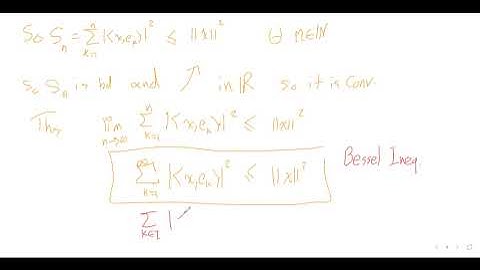 So Sₙ = ∑ₖ₌₁ⁿ |<x,eₖ>|² ≤ ||x||² ∀ n∈ℕ
So Sₙ is bd and ↗ in ℝ so it is Conv.
Thus lim n→∞ ∑ₖ₌₁ⁿ |<x,eₖ>|² ≤ ||x||²
∑ₖ₌₁^∞ |<x,eₖ>|² ≤ ||x||² Bessel Ineq.
∑ k∈I |